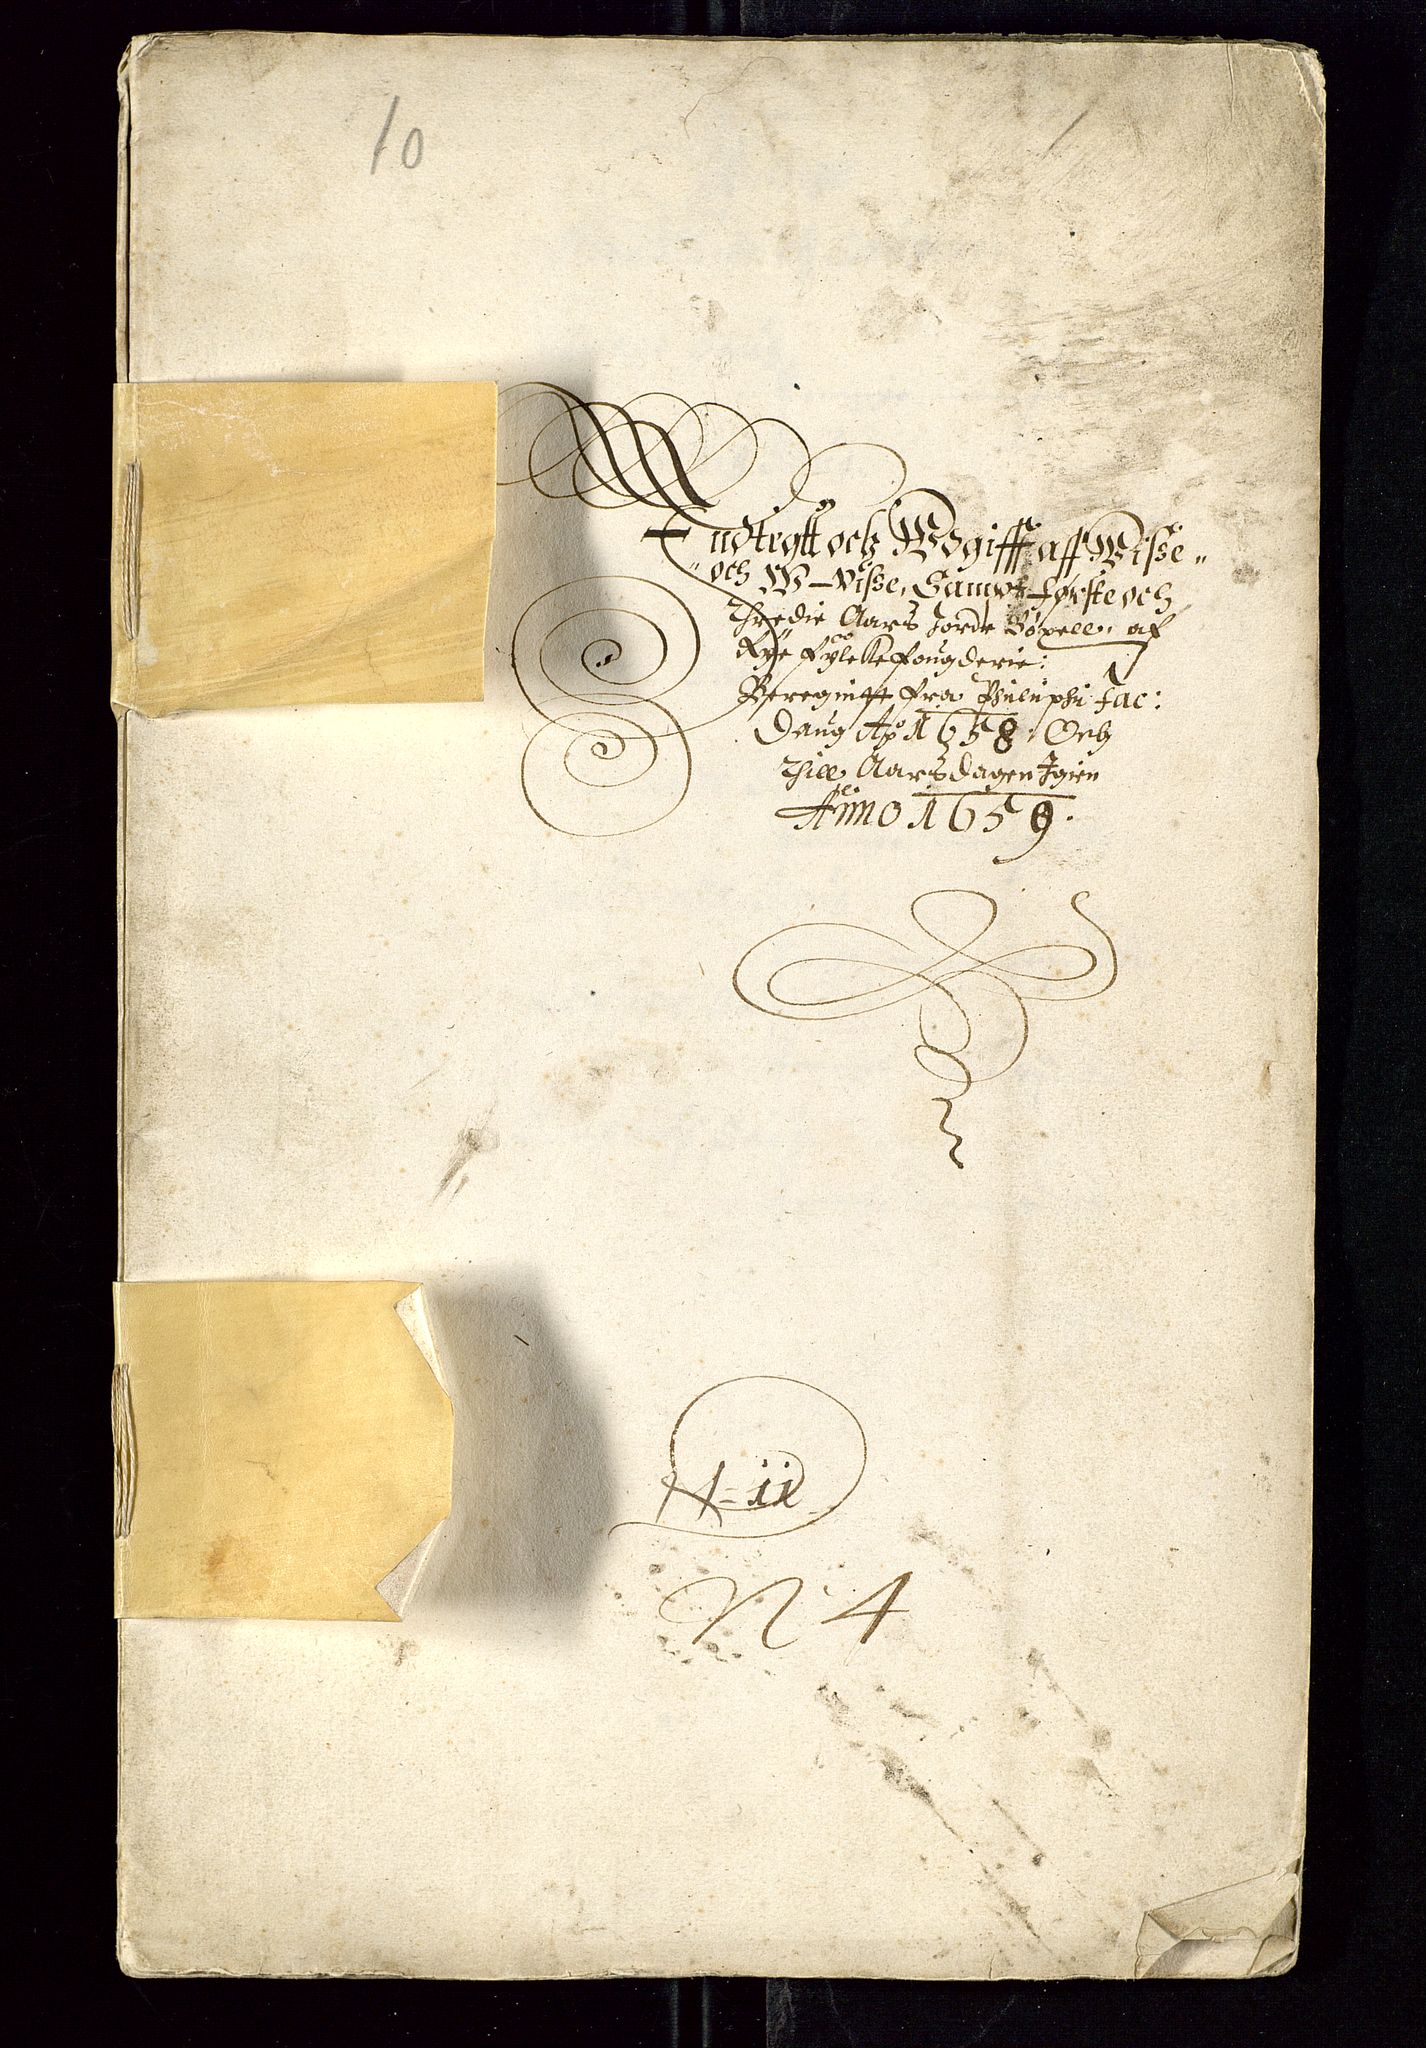 10
Indtegtt och Wdgifft aff Wisße
och W-visße, Sampt første och
Thredie Aars Jorde Bøxell, aff
Rye fylcke ffougderie:
Beregnitt fra Philiphi Jac:
Daug Aō 1658. Och
Thill Aarsdagen Igien
Anno 1659.
N ii
N 4